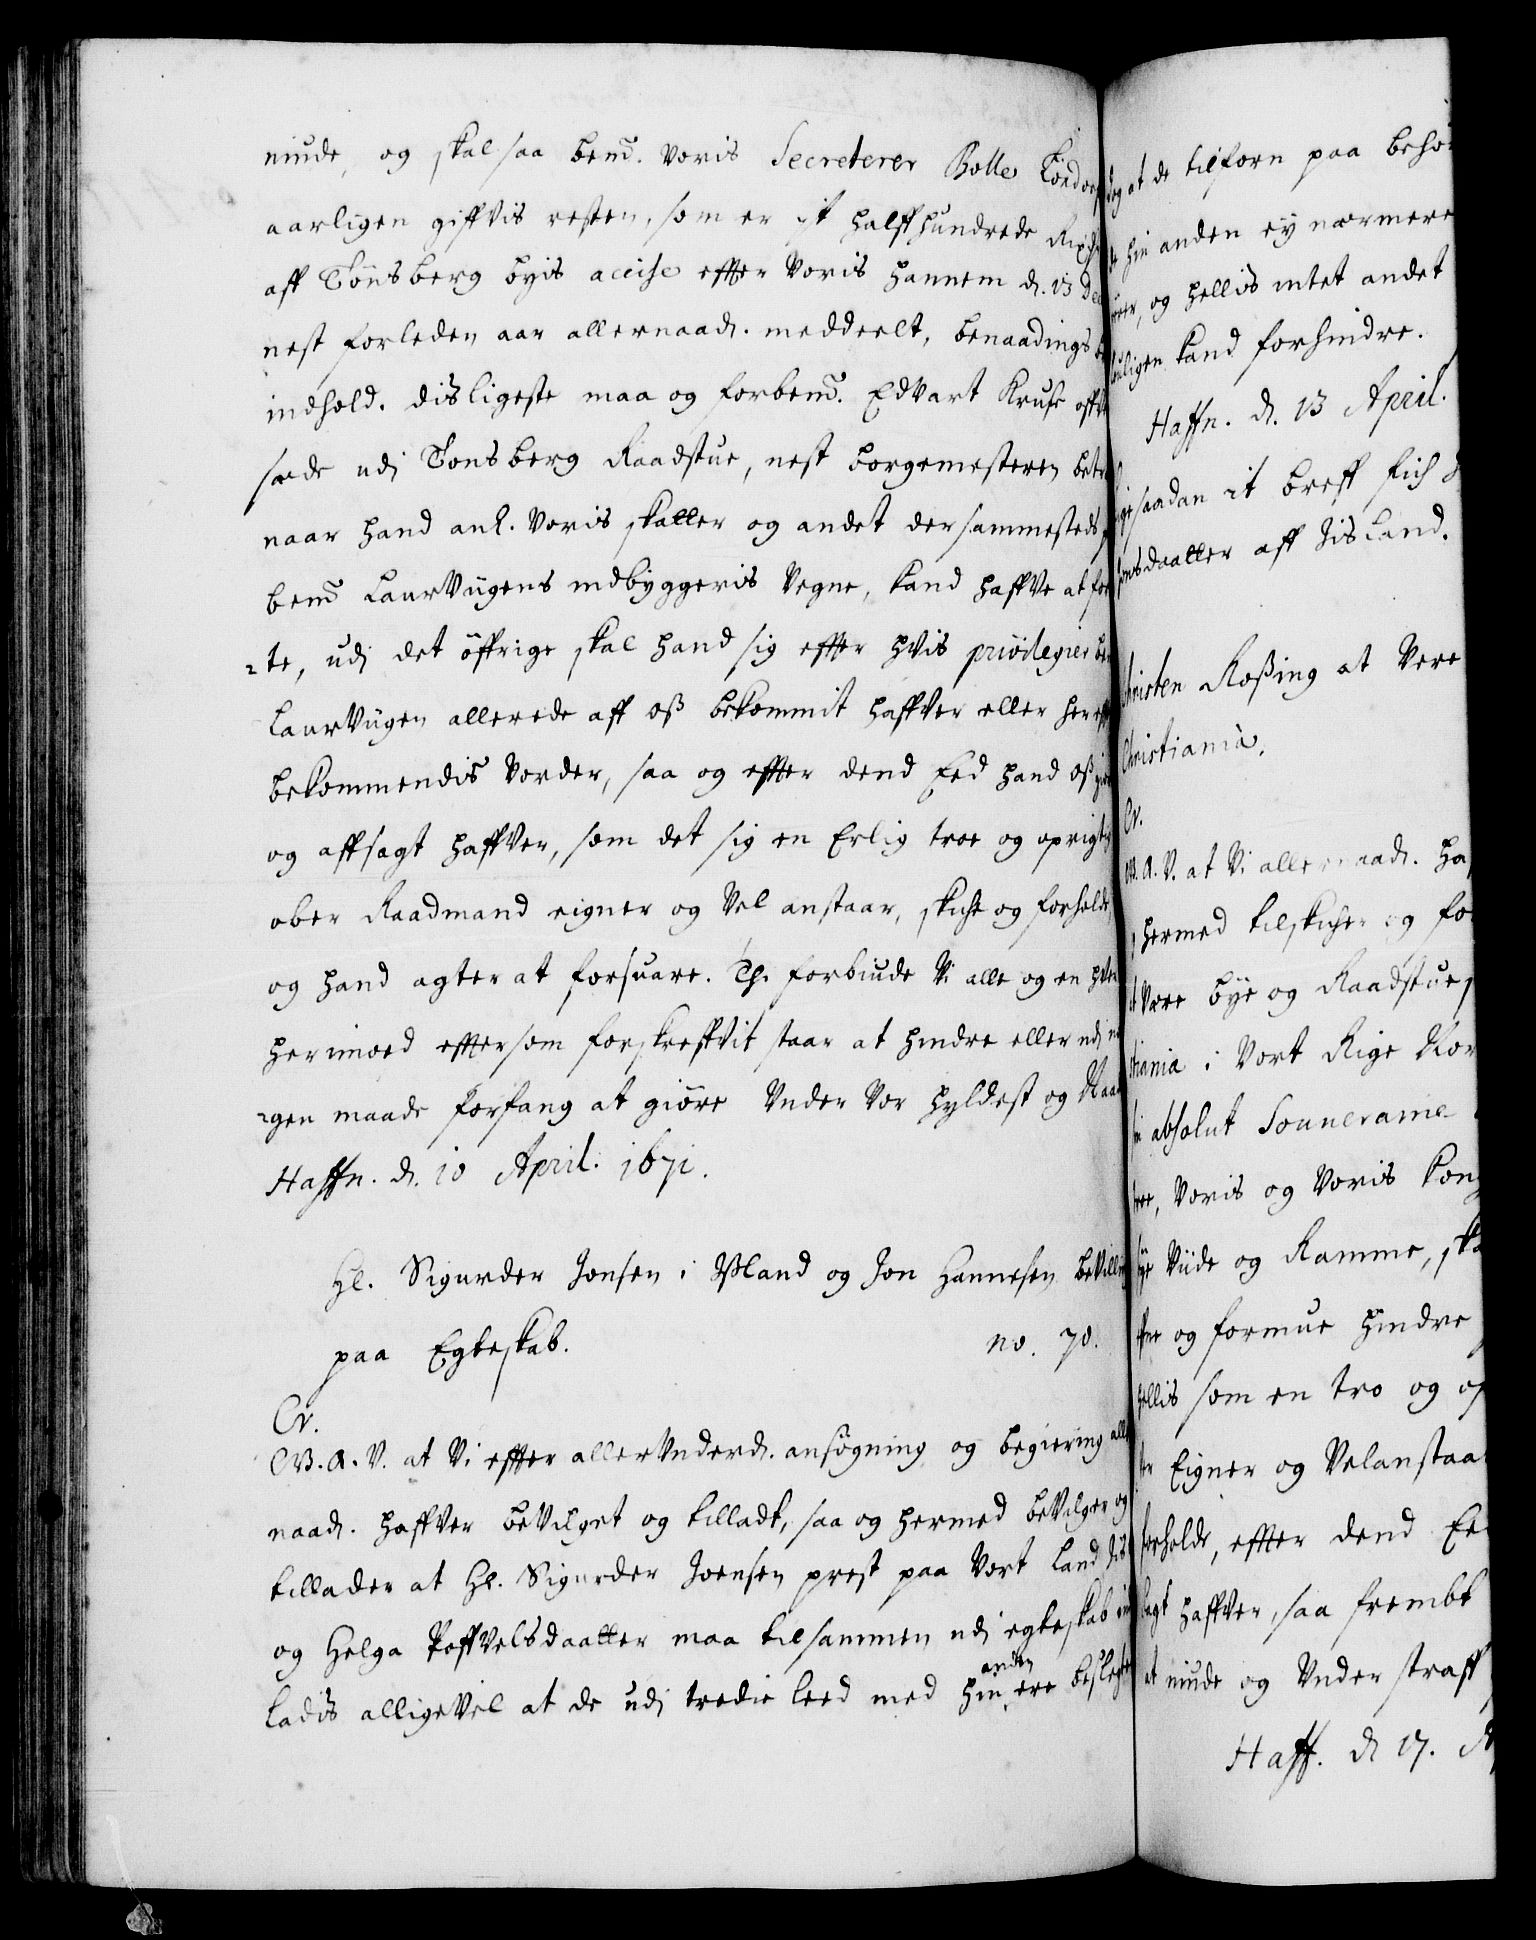 minde, og skal saa bemd. voris Secreterer Bolle
aarligen giffvis resten, som er it halffhundrede Rixd
aff Tönsberg byis accise effter Voris hannem d. 13 De
nest forleden aar allernaad. meddeelt, benaadings
indhold. disligeste maa og forbemd. Edvart Kruse
sæde udj Tonsberg Raadstue, nest borgemesteren
naar hand anl. voris skatter og andet dersammesteds
bemd Laurvügens indbyggeris Vegne, kand haffve at for
te, udj det öffrige skal hand sig effter hvis privilegier
Laurvügen allerede aff oß bekommit haffver eller her
bekommendis vorder, saa og effter dend Eed hand oß
og afflagt haffver, som det sig en Erlig troe og oprigtig
ober Raadmand eigner og vel anstaar, skiche og forholde,
og hand agter at forsuare. Thi forbiude Vi alle og en hver
herimod effter som forskreffvit staar at hindre eller udj
gen maade forfang at giöre Under Vor hyldest og Naad
Haffn. d. 10 April. 1671.
Hl. Sigurder Jonsen i Island og Jon Hannesen beVilling
paa Egteskab. no. 70.
Cr.
G. A. V. at Vi effter allerUnderd. ansögning og begiering
naad. haffver beVilget og tilladt, saa og hermed beVilger og
tillader at Hl. Sigurder Joensen prest paa Vort Land
og Helga Poffvelsdaatter maa tilsammen udj egteskab
ladis alligevel at de udj tredie leed med hin anden ere beslegte
dog at de tilforn paa behö
hin anden ey nærmere
og hellis intet andet
ligen kand forhindre.
Haffn. d. 13 April.
saadan it breff fich
daatter aff Jisland.
Christen Roßing at Vere
Christiania.
Cr.
G. A. V. at Vi allernaad. ha
hermed tilskicher og fo
Være bye og Raadstue
tiania i Vort Rige Nor
absolut Souveraine
Voris og Voris Kong
Viide og Ramme, ska
og formue hindre
hellis som en tro og op
Eigner og Velanstaa
forholde, effter dend Ee
lagt haffver, saa frembt
minde og Under straff
Haff. d 17. A